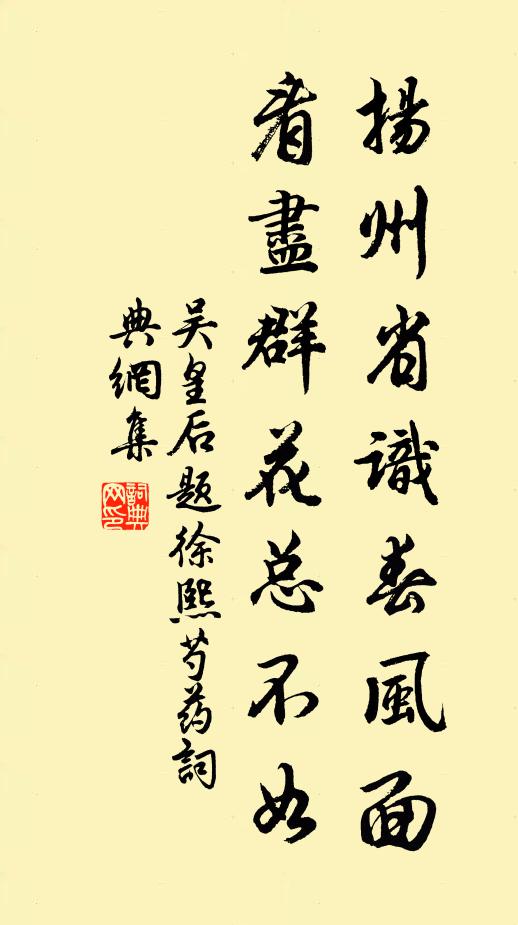 揚州省識春風面
看盡群花总不如
吴皇后題徐熙芍药詞
典網集
詞典
网印